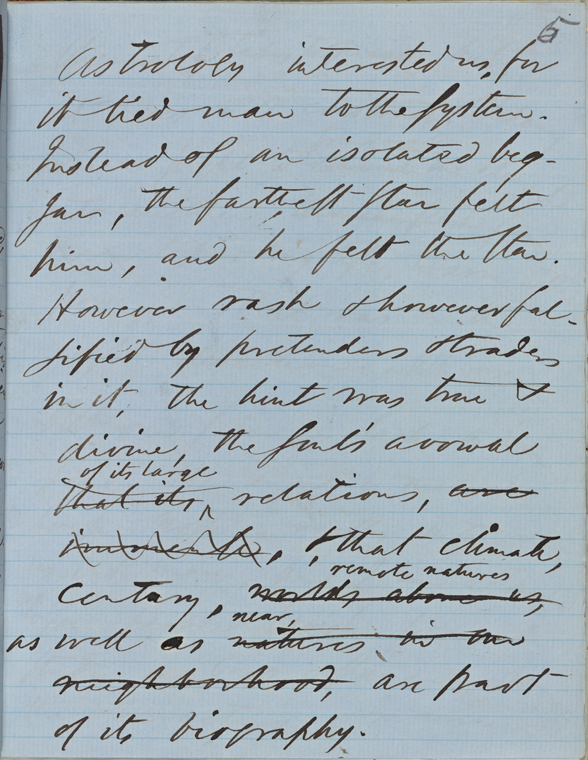 5
Astrology interested us, for
it tied man to the system.
Instead of an isolated beg-
gar, the farthest star felt
him, and he felt the star.
However rash & however fal-
sified by pretenders & traders
in it, the hint was true &
divine, the soul's avowal
of its large
that its relations, are
immense, & that climate,
remote natures
century, worlds above us,
near,
as well as natures in our
neighborhood, are part
of its biography.